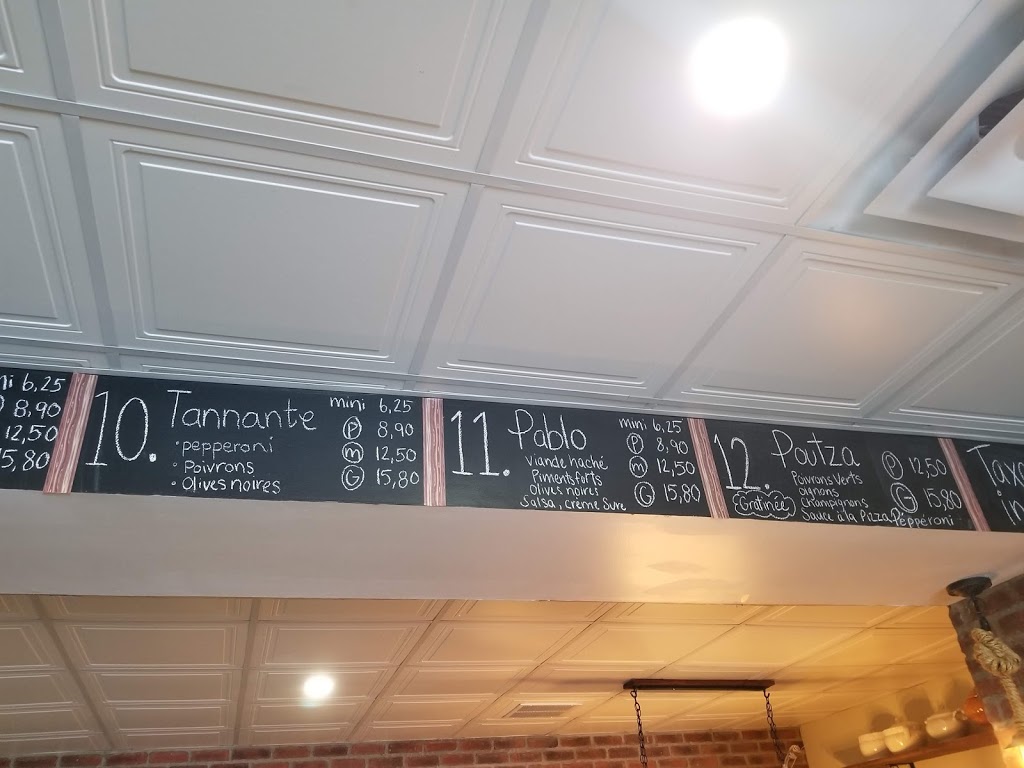 6,25
8,90
12,50
15,80
10. Tannante
• pepperoni
• Poivrons
• Olives noires
mini 6,25
P 8,90
m 12,50
G 15,80
11. Pablo
Viande haché
Piments forts
Olives noires
Salsa, crème Sure
mini 6,25
P 8,90
m 12,50
G 15,80
12. Poutza
Gratinée
Poivrons Verts
oignons
Champignons
Sauce à la Pizza, Pepperoni
P 12,50
G 15,80